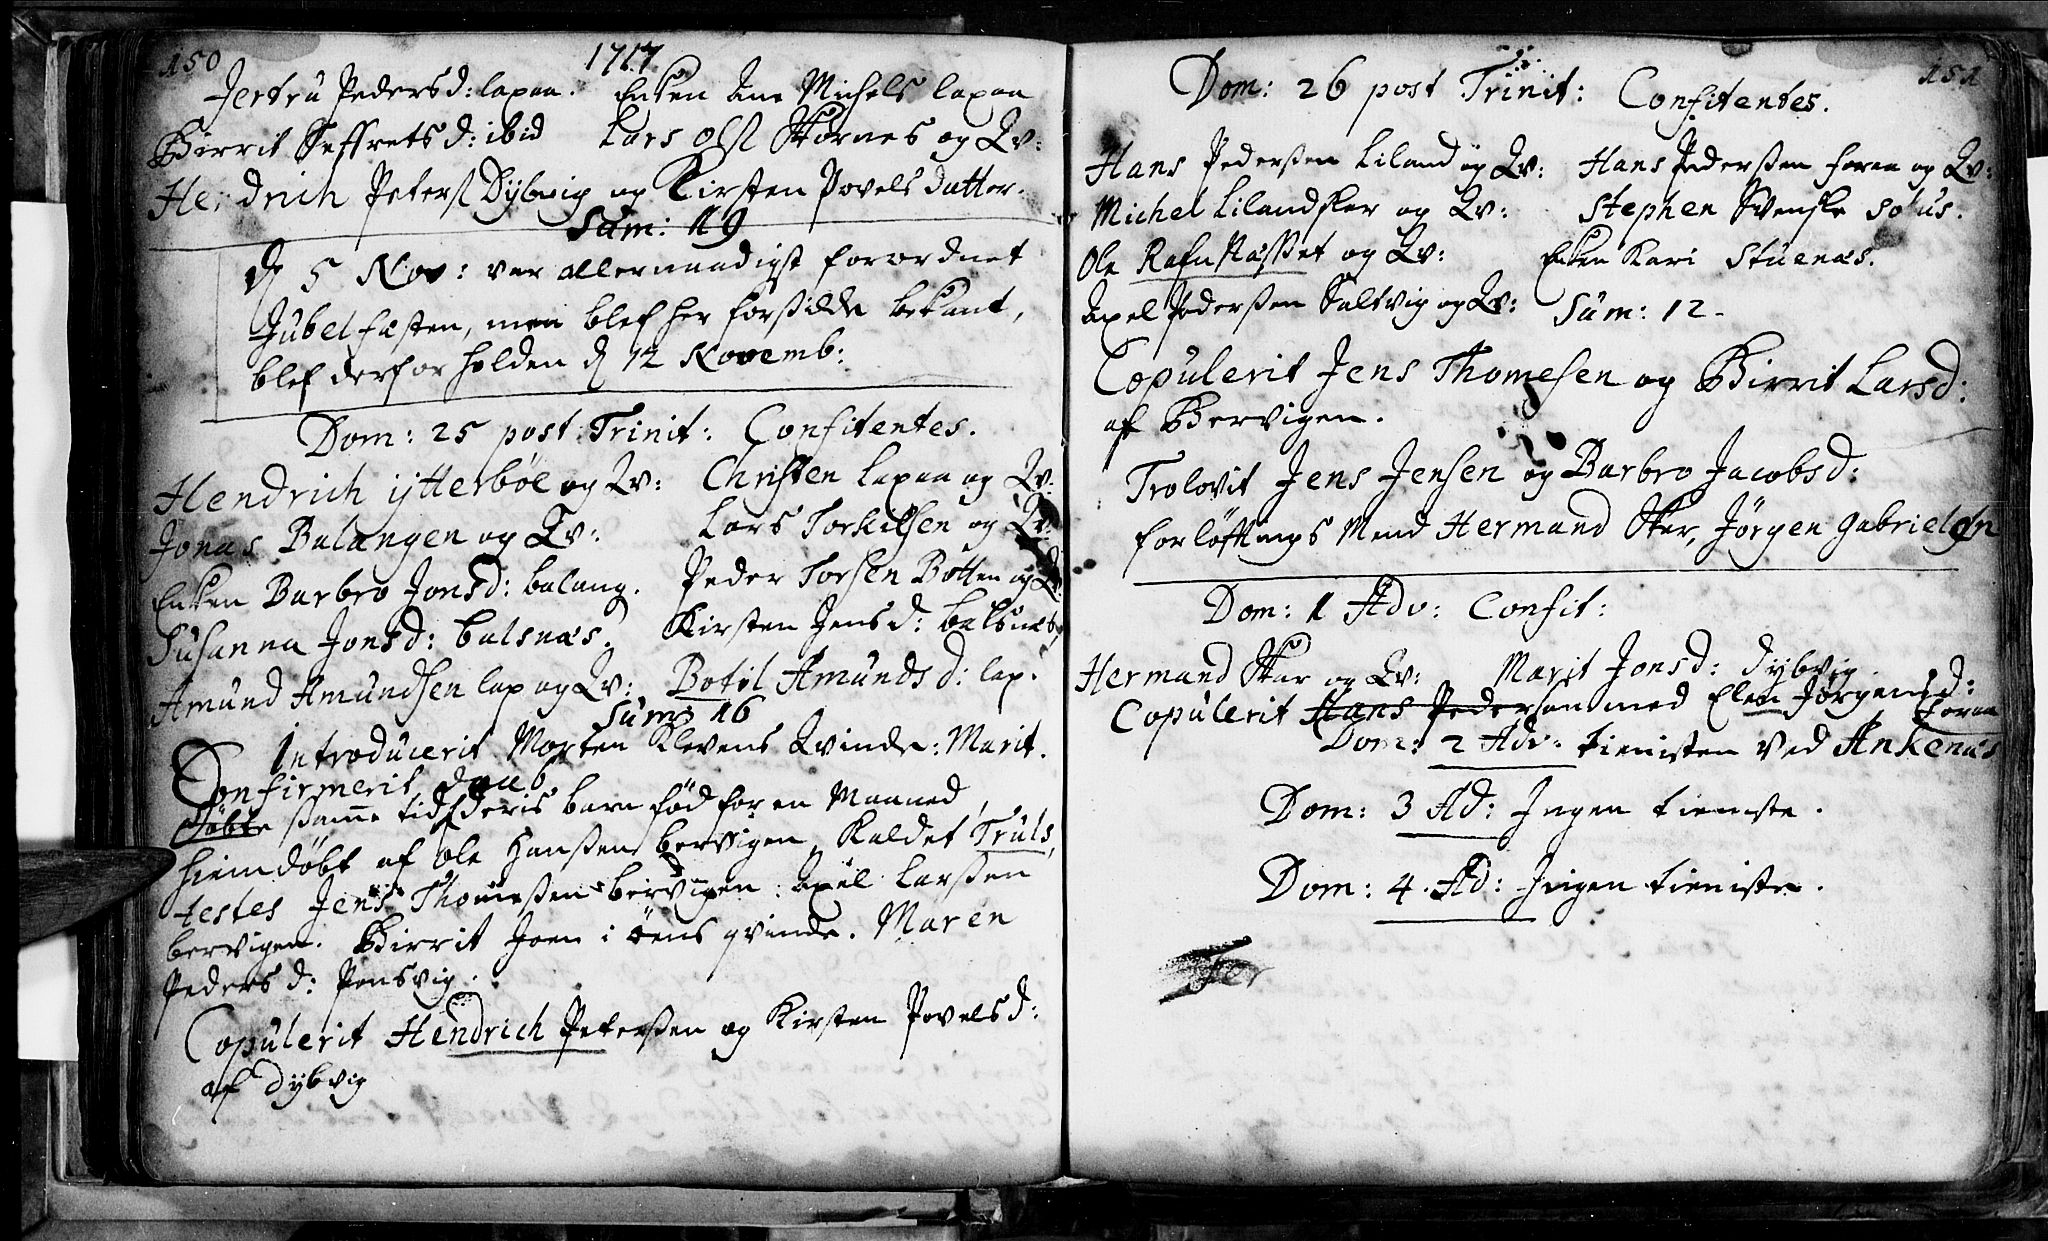 150
1717
Jertru Pedersd: laxaa. Enken Ane Michels laxaa
Birrit Seffretsd: ibid Lars Ols. Skornes og Qv:
Hendrich Peters. Dybvig og Kirsten Povels datter.
Sum: 19
d. 5 Nov: var allernaadigst forordnet
Jubelfæsten, men blef her forsilde bekant,
blef derfor holden d. 12 Novemb:
Dom: 25 post Trinit: Confitentes.
Hendrich ÿtterböe og Qv: Christen Laxaa og Qv:
Jonas Balangen og Qv: Lars Torkilsen og Qv:
Enken Barbro Jonsd: balang. Peder Torsen Botten og Qv:
Susanna Jonsd: balsnæs. Kirsten Jensd: balsnæs,
Amund Amundsen lax og Qv: Botil Amundsd: lax.
Sum: 16
Introducerit Morten Klevens Qvinde: Marit.
Confirmerit daab
döbte samme tid deris barn fød for en Maaned,
hiemdöbt af Ole Hanssen bervigen, Kaldet Truls,
testes Jens Thomessen bervigen: Axel Larssen
bervigen. Birrit Joen i öens qvinde. Maren
Pedersd: Pensvig.
Copulerit Hendrich Peterssen og Kirsten Povelsd:
af Dybvig
151
Dom: 26 post Trinit: Confitentes.
Hans Pederssen Liland og Qv: Hans Pederssen foraa og Qv:
Michel Lilandsker og Qv: Stephen Svenske solus.
Ole Rafn Næsset og Qv: Enken Kari Stuenæs.
Axel Pederssen Saltvig og Qv: Sum: 12
Copulerit Jens Thomesen og Birrit Larsd:
af Bervigen.
Trolovit Jens Jensen og Barbro Jacobsd:
forløftnings Mend Hermand Skar, Jørgen Gabrielsen
Dom: 1 Adv: Confit:
Hermand Skar og Qv: Marit Jonsd: dybvig
Copulerit Hans Pedersen med Elen Jørgensd:
foraa
Dom: 2 Adv: tienisten ved Ankenæs
Dom: 3 Ad: Ingen tieniste.
Dom: 4. Ad: Ingen tieniste.
Fer